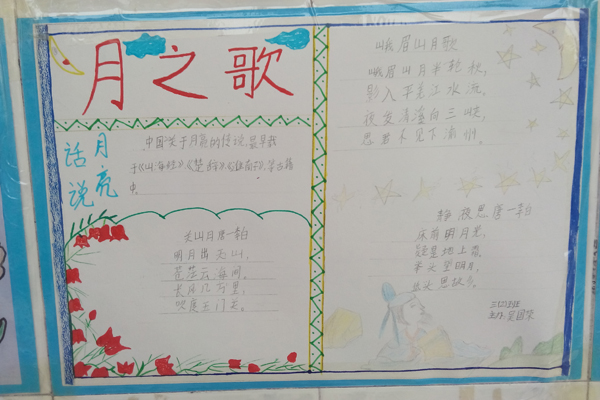 月之歌
话说
月亮
中国关于月亮的传说,最早载
于《山海经》《楚辞》《淮南子》等古籍
中。
关山月 唐—李白
明月出天山,
苍茫云海间。
长风几万里,
吹度玉门关。
峨眉山月歌
峨眉山月半轮秋,
影入平羌江水流。
夜发清溪向三峡,
思君不见下渝州。
静夜思 唐—李白
床前明月光,
疑是地上霜。
举头望明月,
低头思故乡。
三(2)班